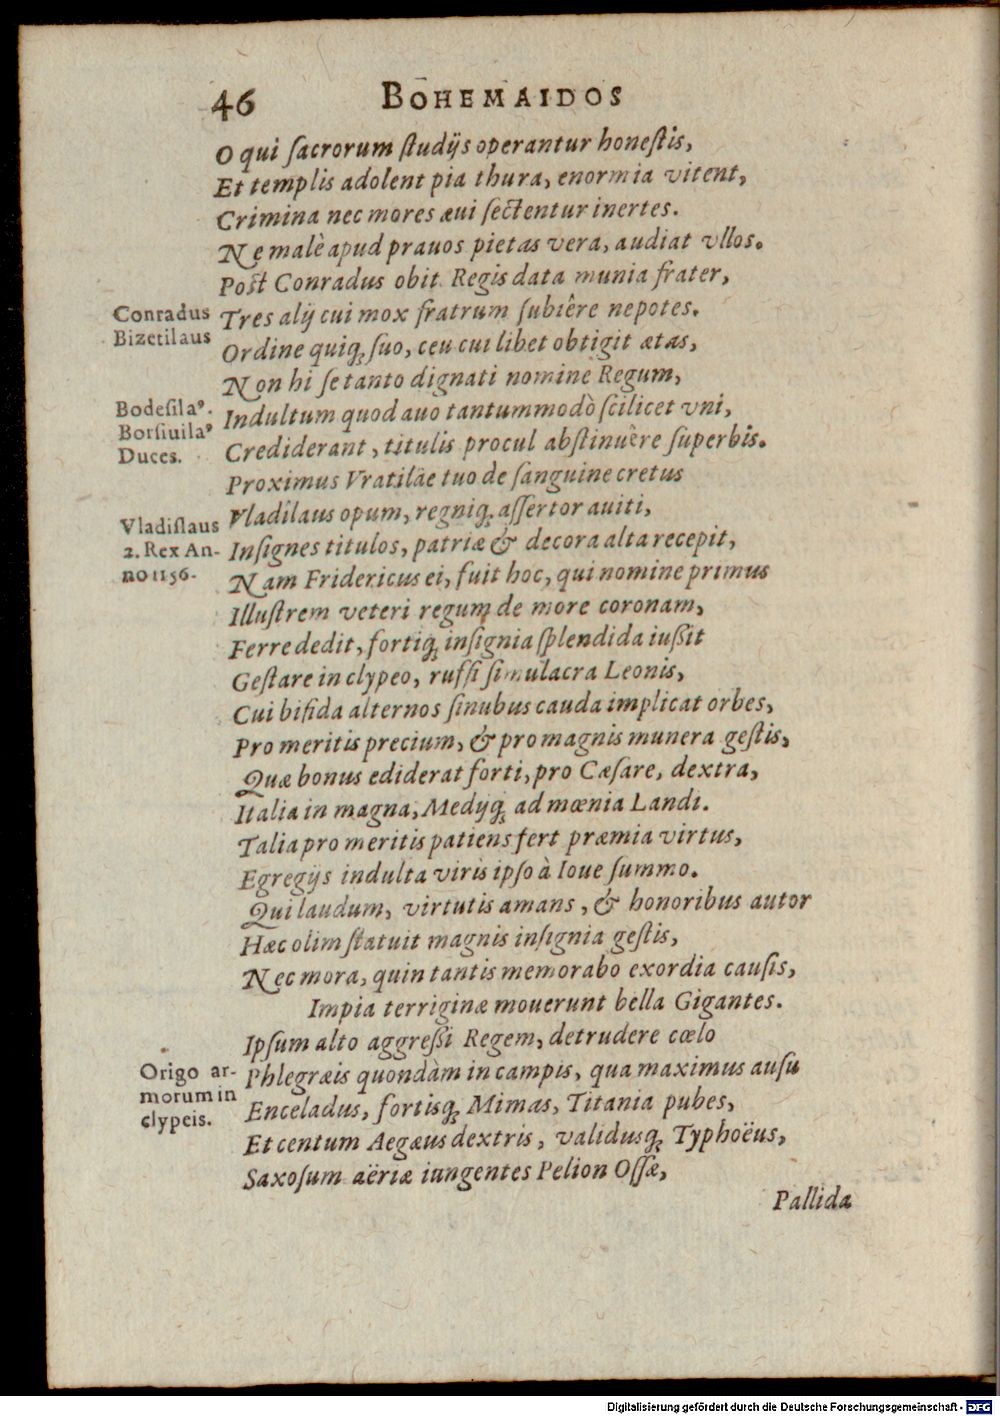 46 BOHEMAIDOS
O qui ſacrorum ſtudijs operantur honeſtis,
Et templis adolent pia thura, enormia vitent,
Crimina nec mores æui ſectentur inertes.
Ne malè apud prauos pietas vera, audiat vllos.
Poſt Conradus obit Regis data munia frater,
Conradus
Bizetilaus
Tres alij cui mox fratrum ſubiêre nepotes.
Ordine quiq; ſuo, ceu cui libet obtigit ætas,
Non hi ſe tanto dignati nomine Regum,
Bodeſilaꝰ.
Borſiuilaꝰ
Duces.
Indultum quod auo tantummodò ſcilicet vni,
Crediderant, titulis procul abſtinuêre ſuperbis.
Proximus Vratiläe tuo de ſanguine cretus
Vladiſlaus
2. Rex An-
no 1156.
Vladilaus opum, regniq; aſſertor auiti,
Inſignes titulos, patriæ & decora alta recepit,
Nam Fridericus ei, fuit hoc, qui nomine primus
Illuſtrem veteri regum de more coronam,
Ferre dedit, fortiq; inſignia ſplendida iuſsit
Geſtare in clypeo, ruffi ſimulacra Leonis,
Cui bifida alternos ſinubus cauda implicat orbes,
Pro meritis precium, & pro magnis munera geſtis,
Quæ bonus ediderat forti, pro Cæſare, dextra,
Italia in magna, Medijq; ad mœnia Landi.
Talia pro meritis patiens fert præmia virtus,
Egregijs indulta viris ipſo à Ioue ſummo.
Qui laudum, virtutis amans, & honoribus autor
Hæc olim ſtatuit magnis inſignia geſtis,
Nec mora, quin tantis memorabo exordia cauſis,
Impia terriginæ mouerunt bella Gigantes.
Ipſum alto aggreſsi Regem, detrudere cœlo
Origo ar-
morum in
clypeis.
Phlegræis quondàm in campis, qua maximus auſu
Enceladus, fortisq; Mimas, Titania pubes,
Et centum Aegæus dextris, validusq; Typhoëus,
Saxoſum aëriæ iungentes Pelion Oſſæ,
Pallida
Digitalisierung gefördert durch die Deutsche Forschungsgemeinschaft - DFG